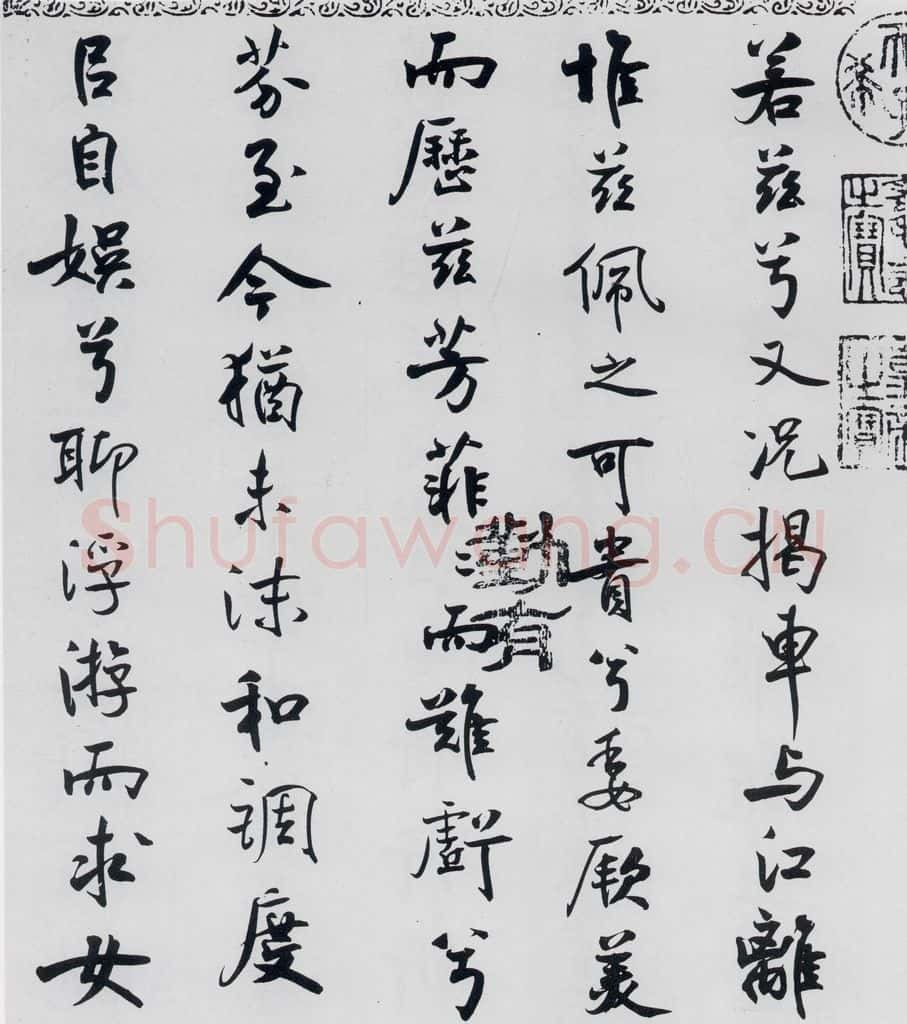 若兹兮又况揭車与江離
惟兹佩之可貴兮委厥美
而歷兹芳菲而難虧兮
芬至今猶未沬和調度
㠯自娛兮聊浮游而求女
勤有
之寶
shufawang.cn